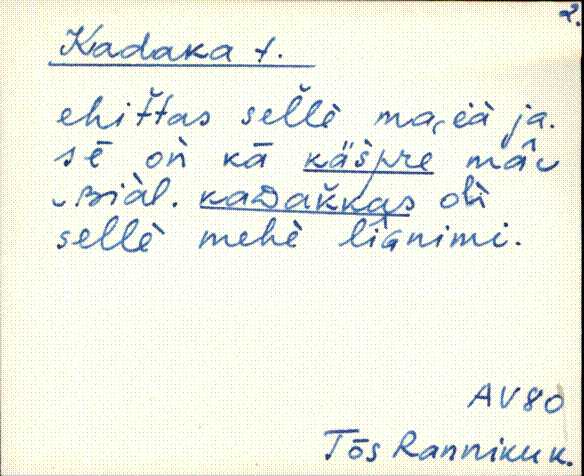 2.
Kadaka t.
ehittas sellè ma,eà ja.
sē oǹ kā käšpre mâ
bìàl. kaDakkas olì
sellè mehè lìanimi.
AV80
Tõs Ranniku k.